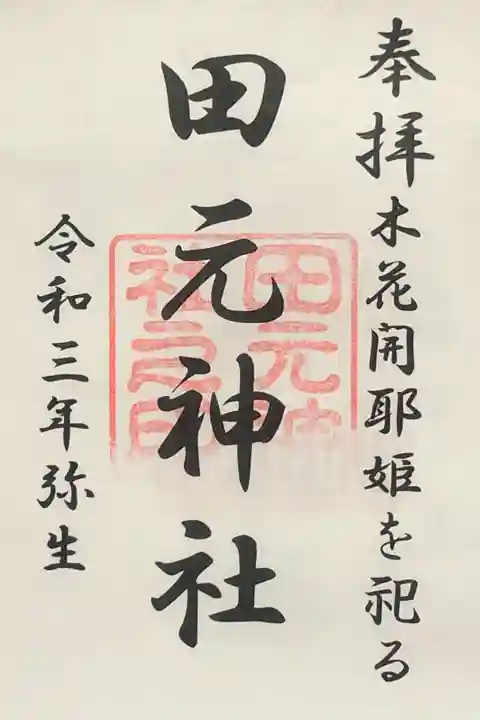 奉拝 木花開耶姫を祀る
田元神社
令和三年弥生
田元神
社之印